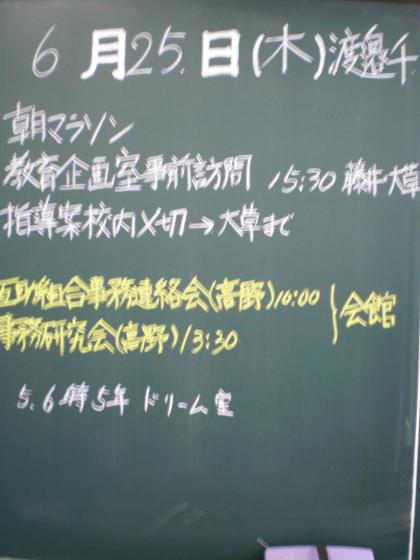 6月25.日(木)渡邉千
朝マラソン
教育企画室事前訪問 15:30 藤井・大草
指導案校内〆切→大草まで
互助組合事務連絡会(髙野)10:00
事務研究会(髙野)13:30
}会館
5.6時5年 ドリーム室